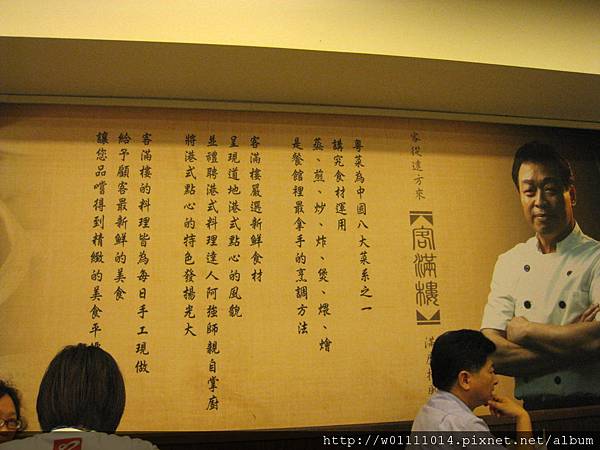 客從遠方來
客滿樓
滿
粵菜為中國八大菜系之一
講究食材運用
蒸、煎、炒、炸、煲、煨、燴
是餐館裡最拿手的烹調方法
客滿樓嚴選新鮮食材
呈現道地港式點心的風貌
並禮聘港式料理達人阿強師親自掌廚
將港式點心的特色發揚光大
客滿樓的料理皆為每日手工現做
給予顧客最新鮮的美食
讓您品嚐得到精緻的美食平
http://w01111014.pixnet.net/album